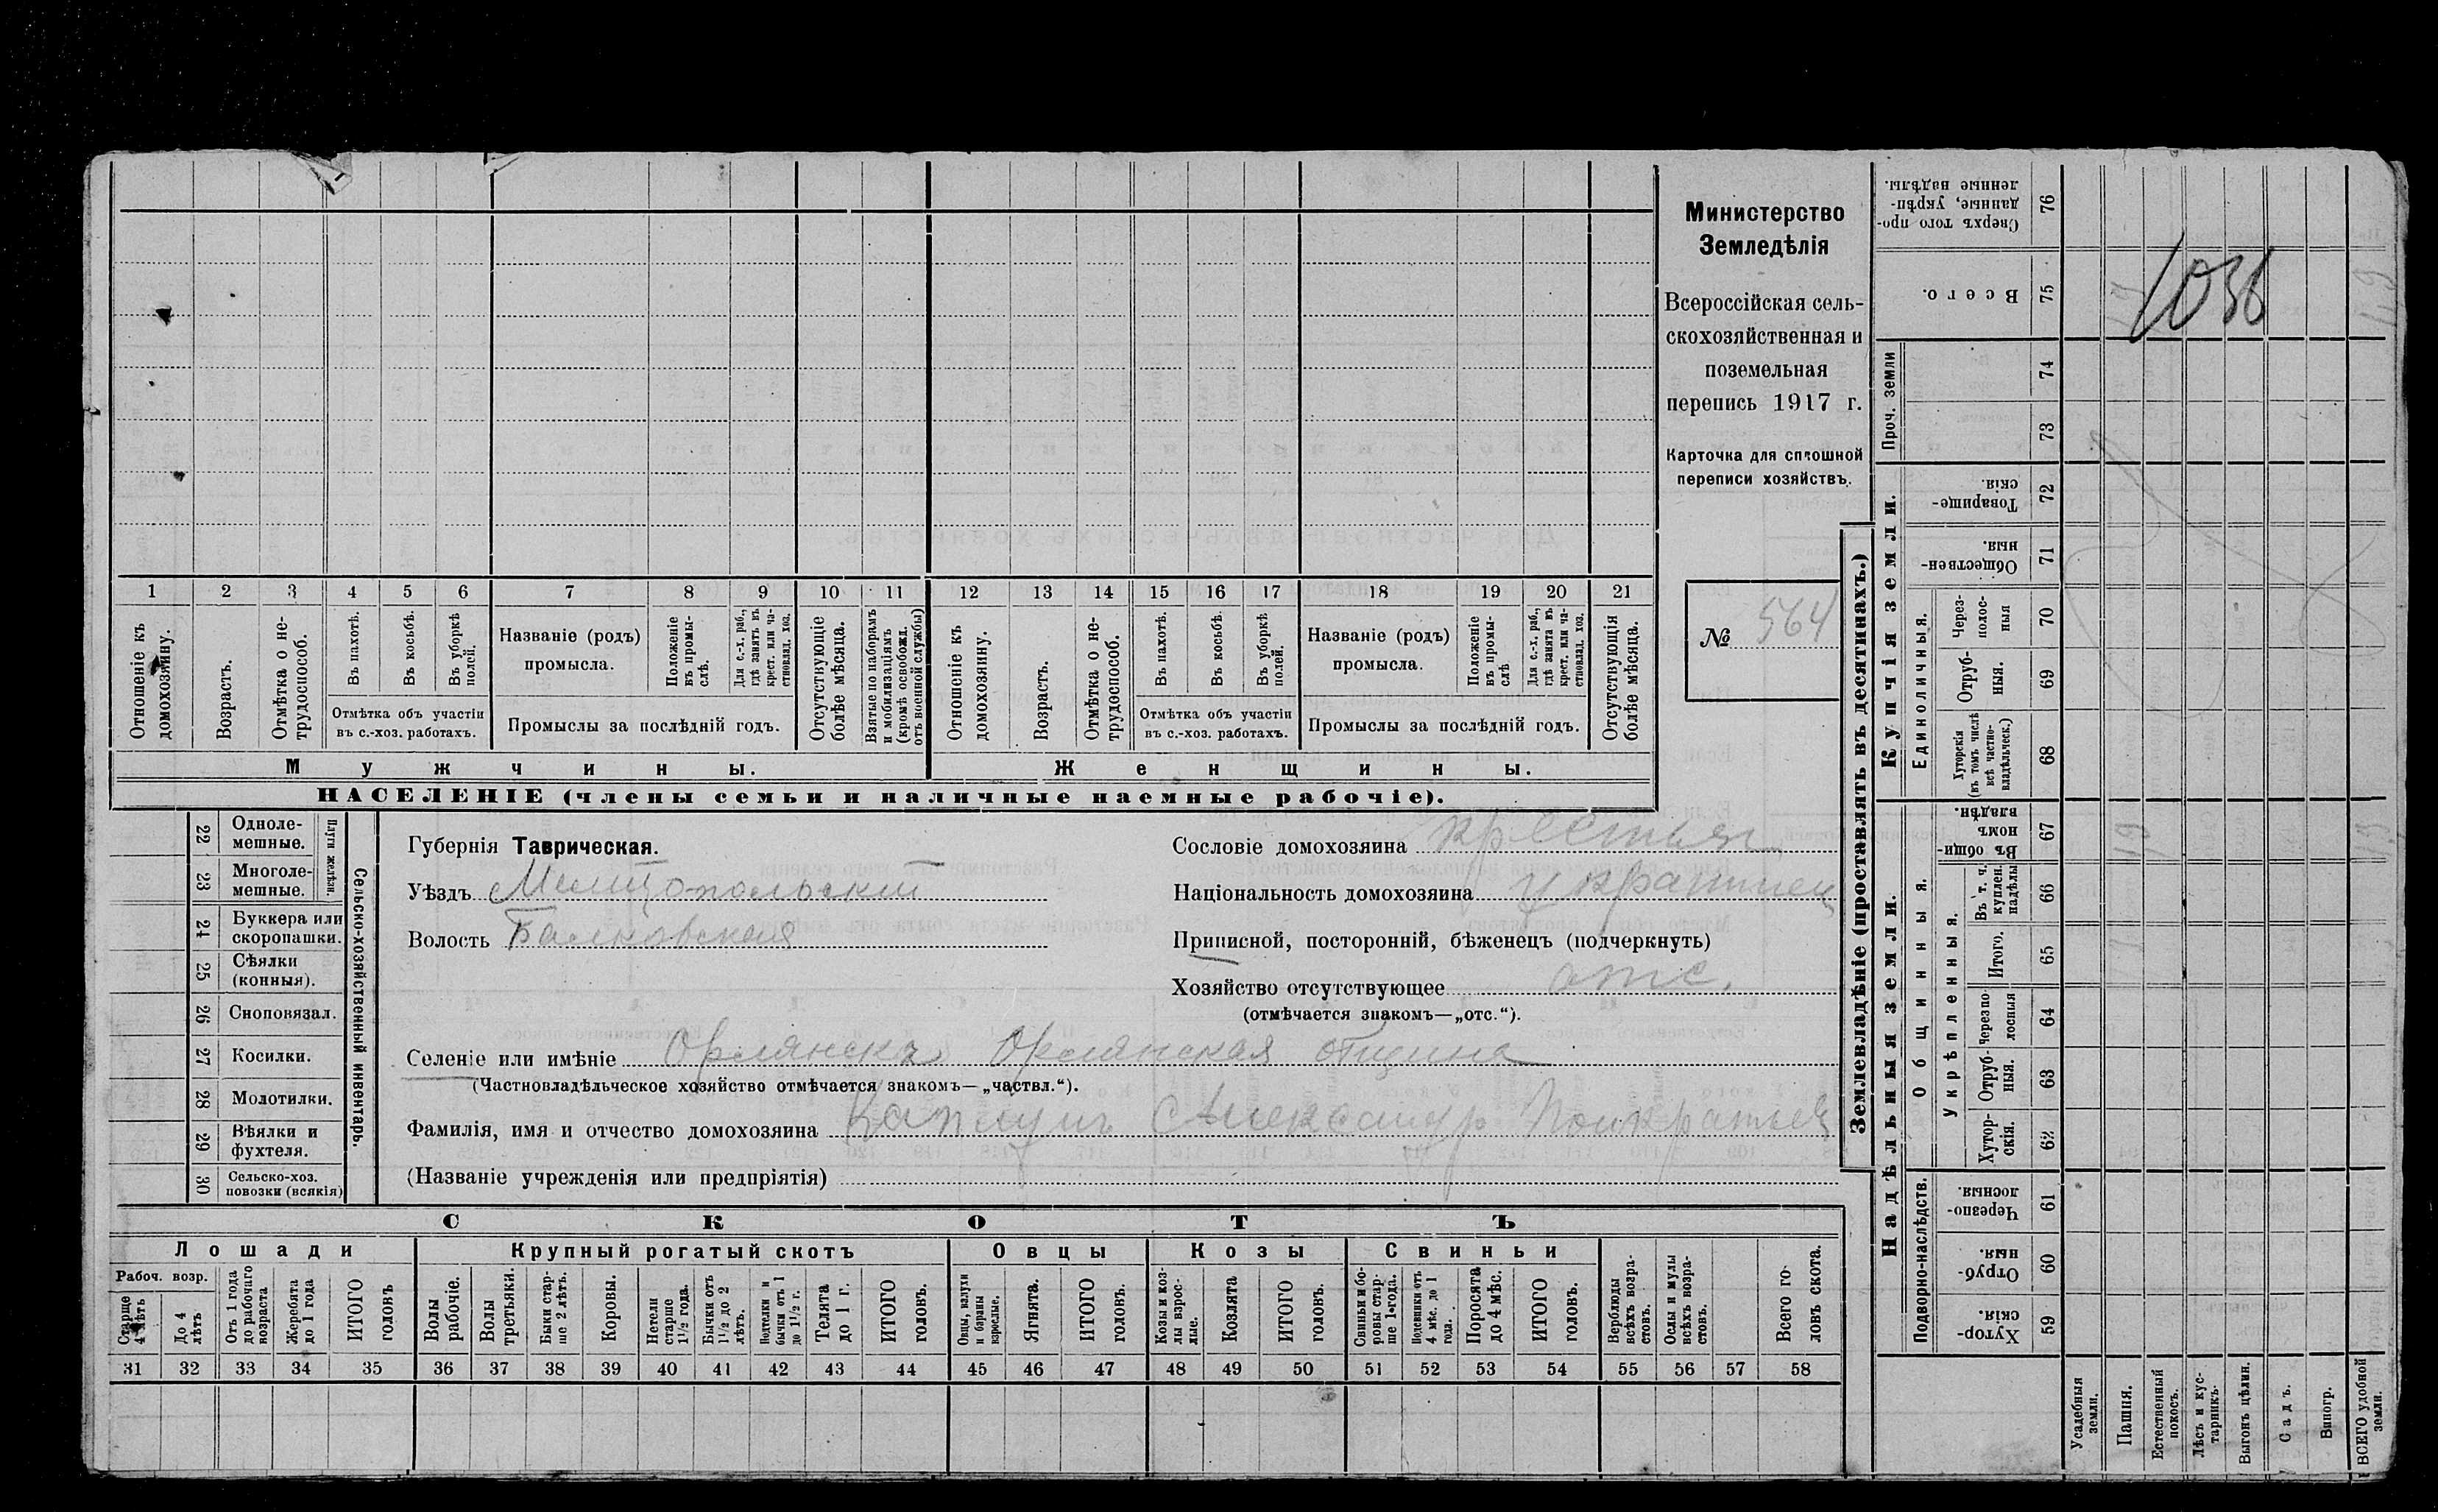 Министерство
Земледѣлія
Всероссійская сель-
скохозяйственная и
поземельная
перепись 1917 г.
Карточка для сплошной
переписи хозяйствъ.
№ 564
1 2 3 4 5 6 7 8 9 10 11 12 13 14 15 16 17 18 19 20 21
Отношеніе къ
домохозяину.
Возрастъ.
Отмѣтка о не-
трудоспособ.
Въ пахотѣ.
Въ косьбѣ.
Въ уборкѣ
полей.
Отмѣтка объ участіи
въ с.-хоз. работахъ.
Названіе (родъ)
промысла.
Положеніе
въ промы-
слѣ.
Для с.-х. раб.,
гдѣ занятъ въ
крест. или ча-
стновлад. хоз.
Промыслы за послѣдній годъ.
Отсутствующіе
болѣе мѣсяца.
Взятые по наборамъ
и мобилизаціямъ
(кромѣ освобожд.
отъ военной службы)
Отношеніе къ
домохозяину.
Возрастъ.
Отмѣтка о не-
трудоспособ.
Въ пахотѣ.
Въ косьбѣ.
Въ уборкѣ
полей.
Отмѣтка объ участіи
въ с.-хоз. работахъ.
Названіе (родъ)
промысла.
Положеніе
въ промы-
слѣ
Для с.-х. раб.,
гдѣ занята въ
крест. или ча-
стновлад. хоз.
Промыслы за послѣдній годъ.
Отсутствующія
болѣе мѣсяца.
Мужчины.
Женщины.
НАСЕЛЕНІЕ (члены семьи и наличные наемные рабочіе).
Сельско-хозяйственный инвентарь.
Плуги желѣзн.
22 Одноле-
мешные.
23 Многоле-
мешные.
24 Буккера или
скоропашки.
25 Сѣялки
(конныя).
26 Сноповязал.
27 Косилки.
28 Молотилки.
29 Вѣялки и
фухтеля.
30 Сельско-хоз.
повозки (всякія)
Губернія Таврическая.
Уѣздъ Мелитопольскій
Волость Балковская
Сословіе домохозяина крестьян
Національность домохозяина украинец
Приписной, посторонній, бѣженецъ (подчеркнуть)
Хозяйство отсутствующее отс.
(отмѣчается знакомъ—„отс.“).
Селеніе или имѣніе Орлянскъ Орлянская община
(Частновладѣльческое хозяйство отмѣчается знакомъ—„частвл.“).
Фамилія, имя и отчество домохозяина Каплун Александр
(Названіе учрежденія или предпріятія)
СКОТЪ
Лошади
Рабоч. возр.
Старше
4 лѣтъ
До 4
лѣтъ
Отъ 1 года
до рабочаго
возраста
Жеребята
до 1 года
ИТОГО
головъ
Крупный рогатый скотъ
Волы
рабочіе.
Волы
третьяки.
Быки стар-
ше 2 лѣтъ.
Коровы.
Нетели
старше
1½ года.
Бычки отъ
1½ до 2
лѣтъ.
Подтелки и
бычки отъ 1
до 1½ г.
Телята
до 1 г.
ИТОГО
головъ.
Овцы
Овцы, валухи
и бараны
взрослые.
Ягнята.
ИТОГО
головъ.
Козы
Козы и коз-
лы взрос-
лые.
Козлята
ИТОГО
головъ.
Свиньи
Свиньи и бо-
ровы стар-
ше 1 года.
Подсвинки отъ
4 мѣс. до 1
года.
Поросята
до 4 мѣс.
ИТОГО
головъ.
Верблюды
всѣхъ возра-
стовъ.
Ослы и мулы
всѣхъ возра-
стовъ.
Всего го-
ловъ скота.
31 32 33 34 35 36 37 38 39 40 41 42 43 44 45 46 47 48 49 50 51 52 53 54 55 56 57 58
Землевладѣніе (проставлять въ десятинахъ.)
Сверхъ того про-
данные, укрѣп-
ленные надѣлы.
76
Всего.
75
1036
Проч. земли
74
73
Купчія земли.
Товарище-
скія.
72
Обществен-
ныя.
71
Единоличныя.
Через-
полос-
ныя
70
Отруб-
ныя.
69
Хуторскія
(въ томъ числѣ
всѣ частно-
владѣльческ.)
68
Надѣльныя земли.
Общинныя.
Въ общин-
номъ
владѣн.
67
19
Укрѣпленныя.
Въ т. ч.
куплен.
надѣлы
66
Итого.
65
Черезпо-
лосныя
64
Отруб-
ныя.
63
Хутор-
скія.
62
Подворно-наслѣдств.
Черезпо-
лосныя.
61
Отруб-
ныя.
60
Хутор-
скія.
59
Усадебныя
земли.
Пашня.
Естественный
покосъ.
Лѣсъ и кус-
тарникъ.
Выгонъ цѣлин.
Садъ.
Виногр.
ВСЕГО удобной
земли.